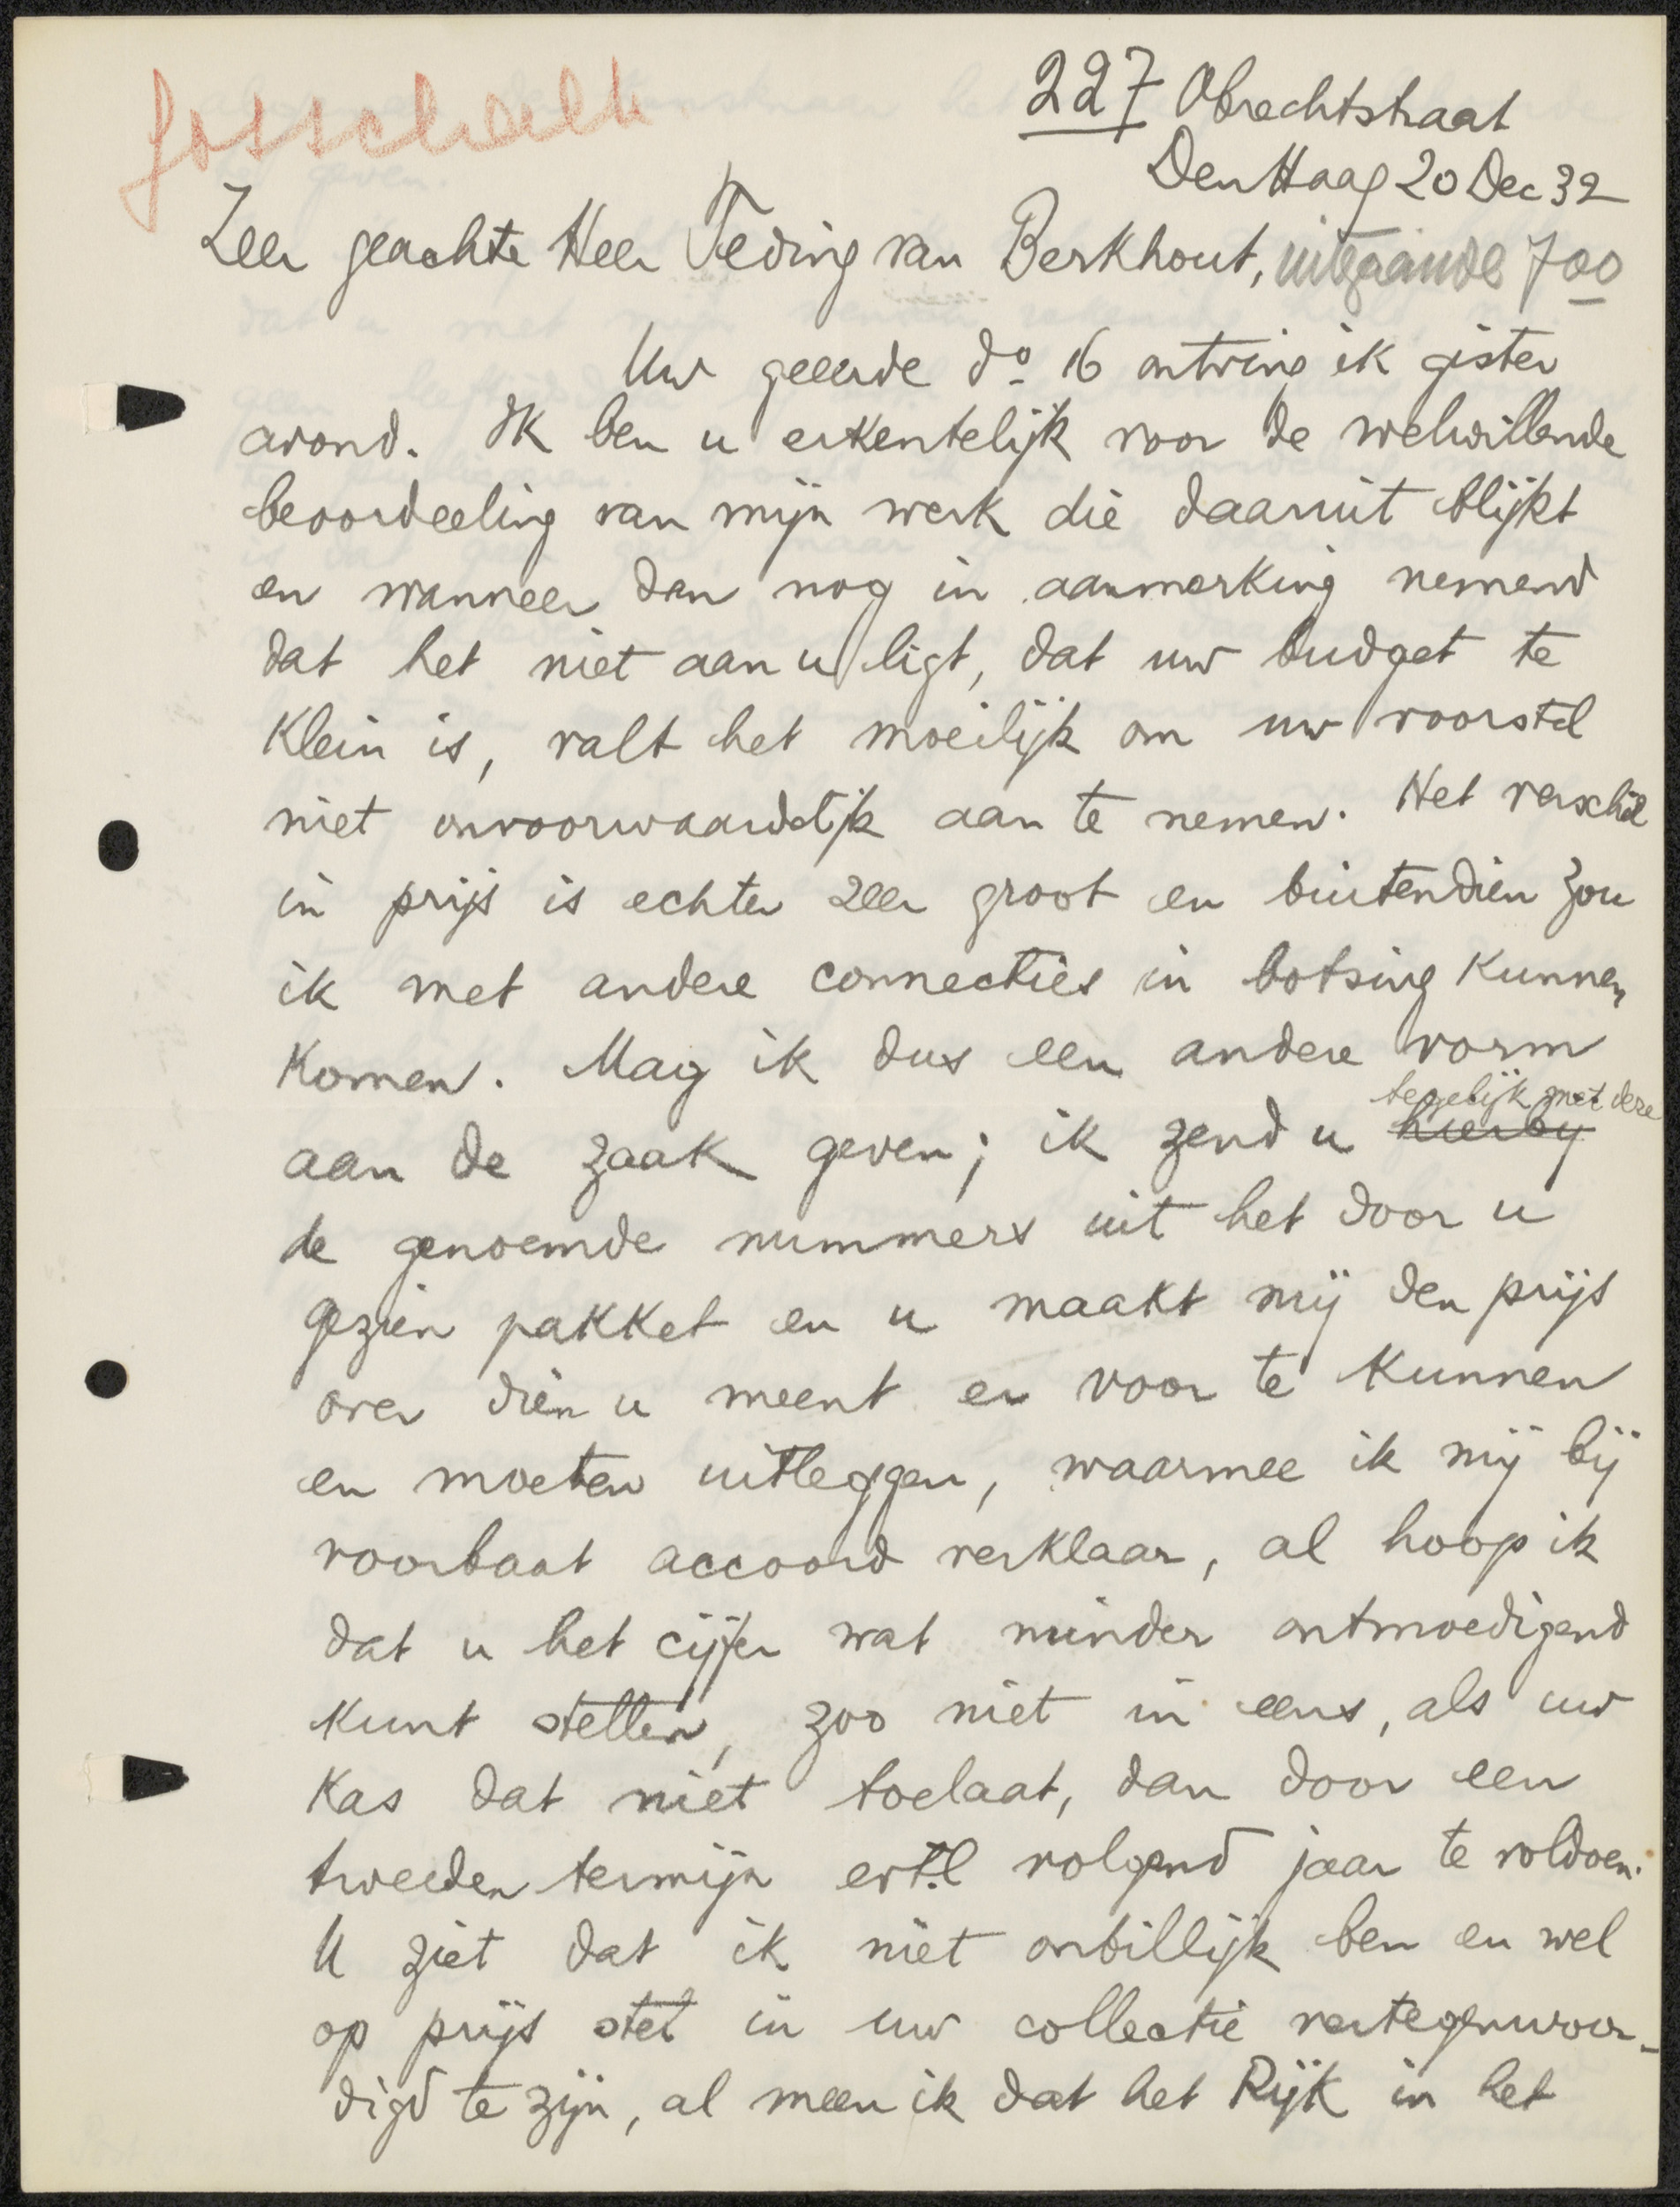 Gosschalk
227 Obrechtstraat
Den Haag 20 Dec 32
Zeer geachte Heer Teding van Berkhout, uitgaande 700
Uw geeerde do 16 ontving ik gister
avond. Ik ben u erkentelijk voor de welwillende
beoordeeling van mijn werk die daaruit blijkt
en wanneer dan nog in aanmerking nemend
dat het niet aan u ligt, dat uw budget te
klein is, valt het moeilijk om uw voorstel
niet onvoorwaardelijk aan te nemen. Het verschil
in prijs is echter zeer groot en buitendien zou
ik met andere connecties in botsing kunnen
komen. Mag ik dus een andere vorm
tegelijk met deze
aan de zaak geven; ik zend u hierby
de genoemde nummers uit het door u
gezien pakket en u maakt mij den prijs
over dien u meent er voor te kunnen
en moeten uitleggen, waarmee ik mij bij
voorbaat accoord verklaar, al hoop ik
dat u het cijfer wat minder ontmoedigend
kunt stellen, zoo niet in eens, als uw
kas dat niet toelaat, dan door een
tweeden termijn evtl volgend jaar te voldoen.
U ziet dat ik niet onbillijk ben en wel
op prijs stel in uw collectie vertegenwoor-
digd te zijn, al meen ik dat het Rijk in het